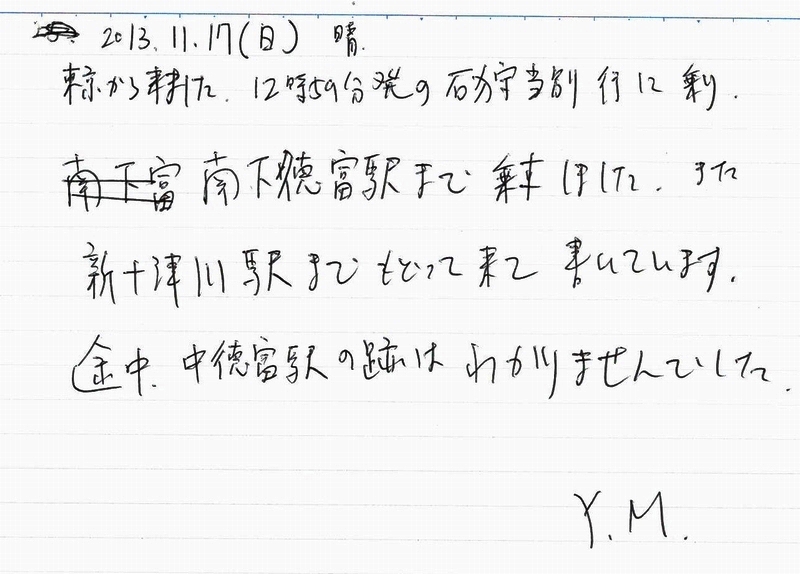 2013.11.17(日) 晴.
東京から来ました. 12時59分発の石狩当別行に乗り.
南下富 南下徳富駅まで乗車しました. また
新十津川駅までもどって来て書いています.
途中.中徳富駅の跡はわかりませんでした.
Y.M.